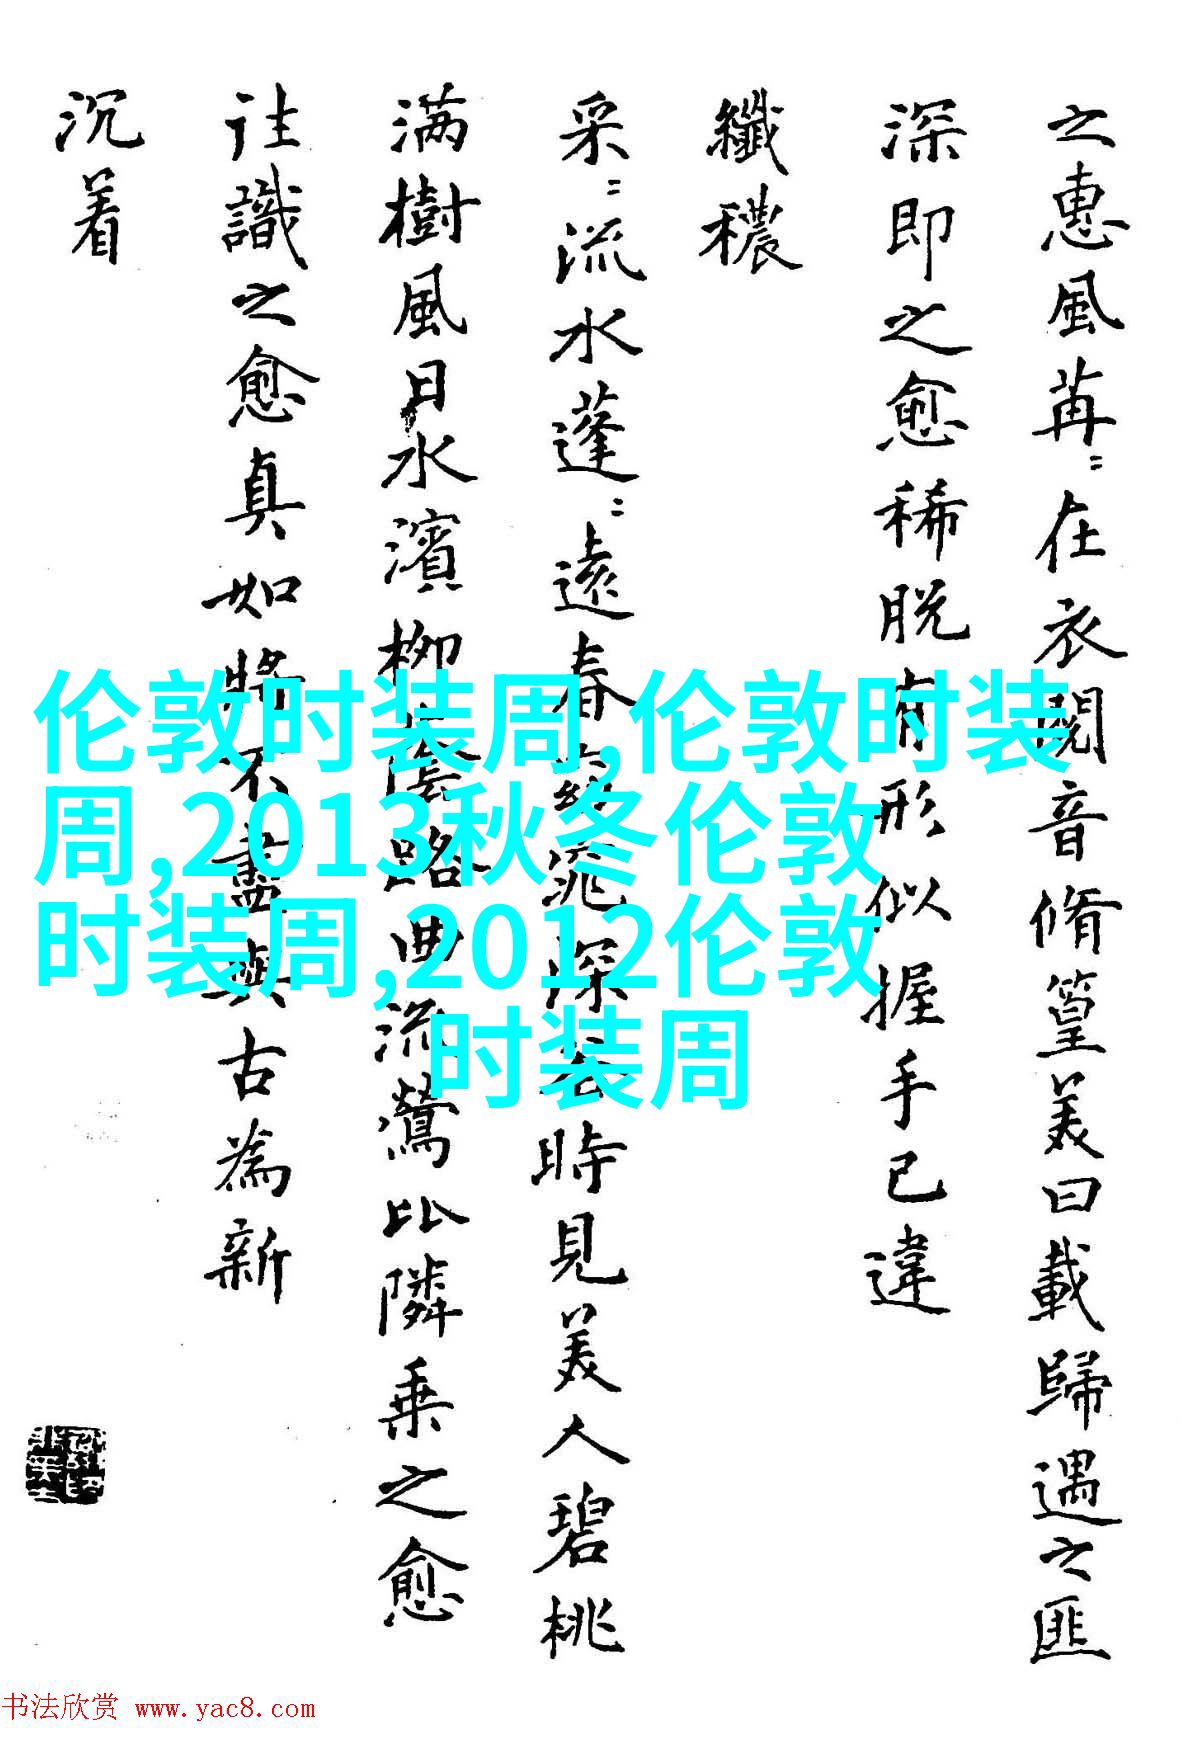 之惠風苒〻在衣閱音脩篁美曰載歸遇之匪
深即之愈稀脱有形似握手已違
纖穠
采〻流水蓬〻遠春窈窕深谷時見美人碧桃
满樹風日水濱柳陰路曲流鶯比隣乗之愈
往識之愈真如將不盡與古為新
沉着
伦敦时装周,伦敦时装
周,2013秋冬伦敦
时装周,2012伦敦
时装周
书法欣赏 www.yac8.com